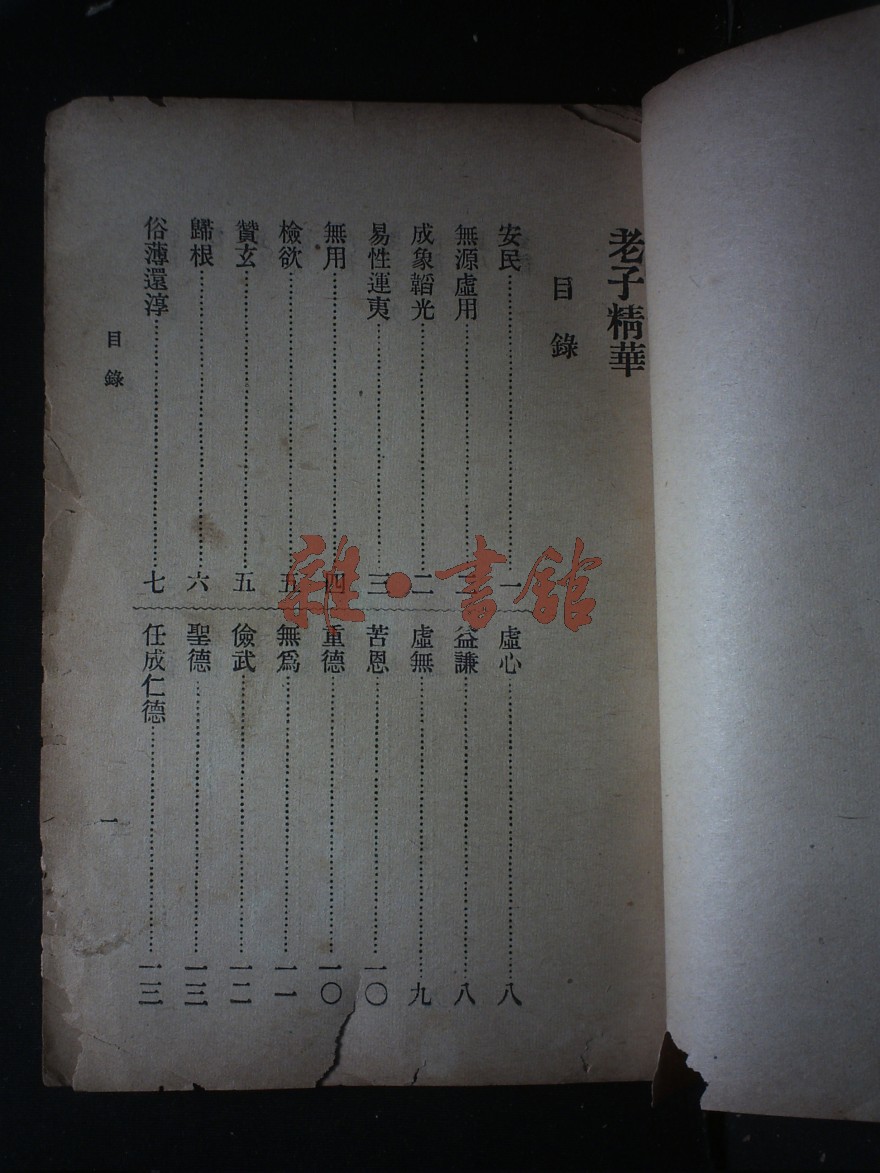 老子精華
目錄
安民⋯⋯一
無源虛用⋯⋯二
成象韜光⋯⋯二
易性運夷⋯⋯三
無用⋯⋯四
檢欲⋯⋯五
贊玄⋯⋯五
歸根⋯⋯六
俗薄還淳⋯⋯七
虛心⋯⋯八
益謙⋯⋯八
虛無⋯⋯九
苦恩⋯⋯一〇
重德⋯⋯一〇
無爲⋯⋯一一
儉武⋯⋯一二
聖德⋯⋯一三
任成仁德⋯⋯一三
目錄
一
雜·書館